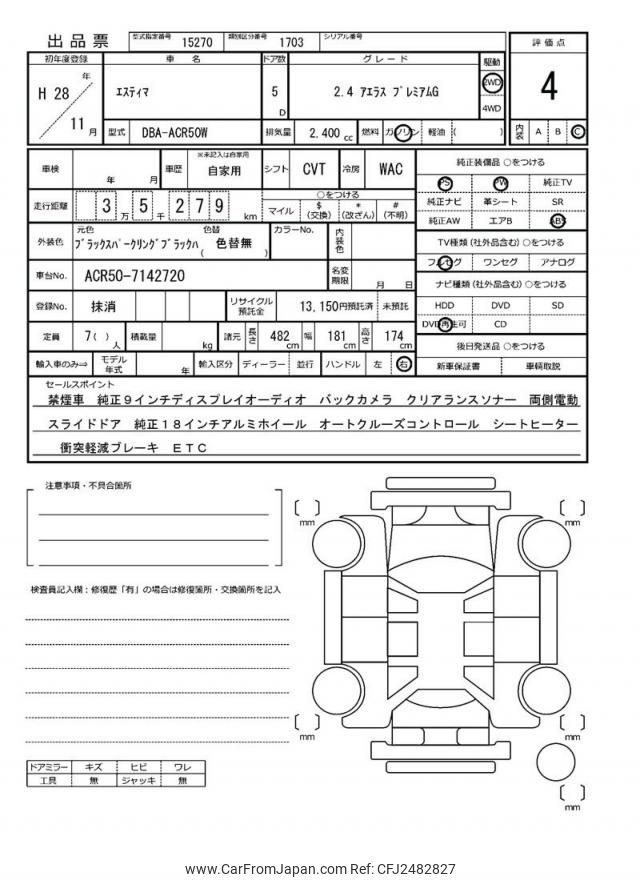 出品票 型式指定番号 15270 類別区分番号 1703 シリアル番号
初年度登録 車 名 ドア数 グレード 駆動 評価点
H 28 年 11 月 エスティマ 5 D 2.4 アエラス プレミアムG 2WD 4WD 4
型式 DBA-ACR50W 排気量 2,400 cc 燃料 ガソリン 軽油 ( ) 内装 A B C
車検 年 月 車歴 ※未記入は自家用 自家用 シフト CVT 冷房 WAC
走行距離 3 万 5 千 2 7 9 km ○をつける マイル $ (交換) * (改ざん) # (不明)
外装色 元色 ブラックスパークリングブラックハ 色替 ( 色替無 ) カラーNo. 内装色
車台No. ACR50-7142720 名変期限 月 日
登録No. 抹消 リサイクル預託金 13,150円預託済 未預託
定員 7( ) 人 積載量 kg 諸元 長さ 482 cm 幅 181 cm 高さ 174 cm
輸入車のみ⇒ モデル年式 年 輸入区分 ディーラー 並行 ハンドル 左 右
純正装備品 ○をつける
PS PW 純正TV
純正ナビ 革シート SR
純正AW エアB ABS
TV種類 (社外品含む) ○をつける
フルセグ ワンセグ アナログ
ナビ種類 (社外品含む) ○をつける
HDD DVD SD
DVD再生可 CD
後日発送品 ○をつける
新車保証書 車輌取説
セールスポイント
禁煙車 純正9インチディスプレイオーディオ バックカメラ クリアランスソナー 両側電動
スライドドア 純正18インチアルミホイール オートクルーズコントロール シートヒーター
衝突軽減ブレーキ ETC
注意事項・不具合箇所
検査員記入欄：修復歴「有」の場合は修復箇所・交換箇所を記入
mm
mm
mm
mm
mm
ドアミラー キズ ヒビ ワレ
工具 無 ジャッキ 無
www.CarFromJapan.com Ref: CFJ2482827